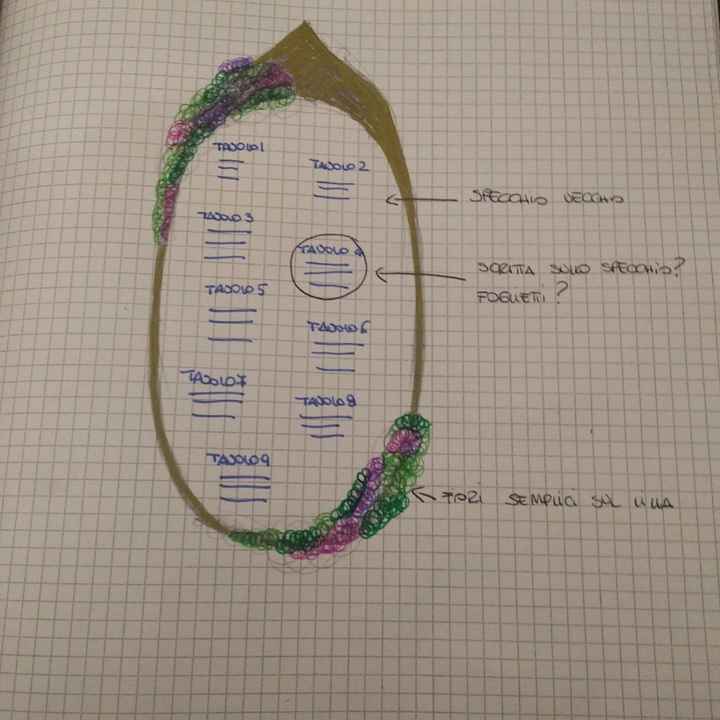 TAVOLO 1
TAVOLO 2
SPECCHIO VECCHIO
TAVOLO 3
TAVOLO 4
SCRITTA SULLO SPECCHIO?
FOGLIETTI?
TAVOLO 5
TAVOLO 6
TAVOLO 7
TAVOLO 8
TAVOLO 9
FIORI SEMPLICI SUL LILLA